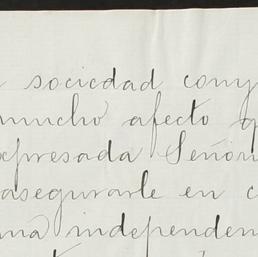 sociedad
mucho afecto
expresada Señor
asegurarle en
una independen